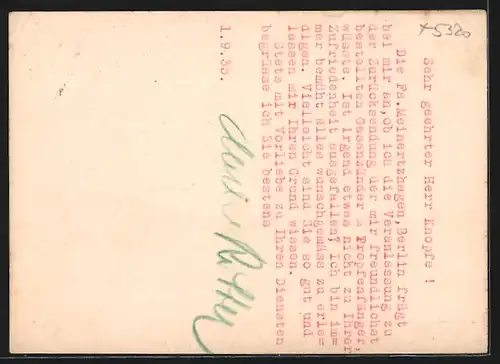 x5320
Sehr geehrter Herr Knopfe !
Die Fa.Meinertzhagen,Berlin frägt
bei mir an,ob ich die Veranlassung zu
der Zurücksendung der mir freundlichst
bestellten Gasanzünder & Tropfenfänger,
wüsste. Ist irgend etwas nicht zu Ihrer
Zufriedenheit ausgefallen? Ich bin im=
mer bemüht alles wunschgemäss zu erle=
digen. Vielleicht sind Sie so gut und
lassen mir Ihren Grund wissen.
Stets mit Vorliebe zu Ihren Diensten
begrüsse ich Sie bestens
1.9.33.